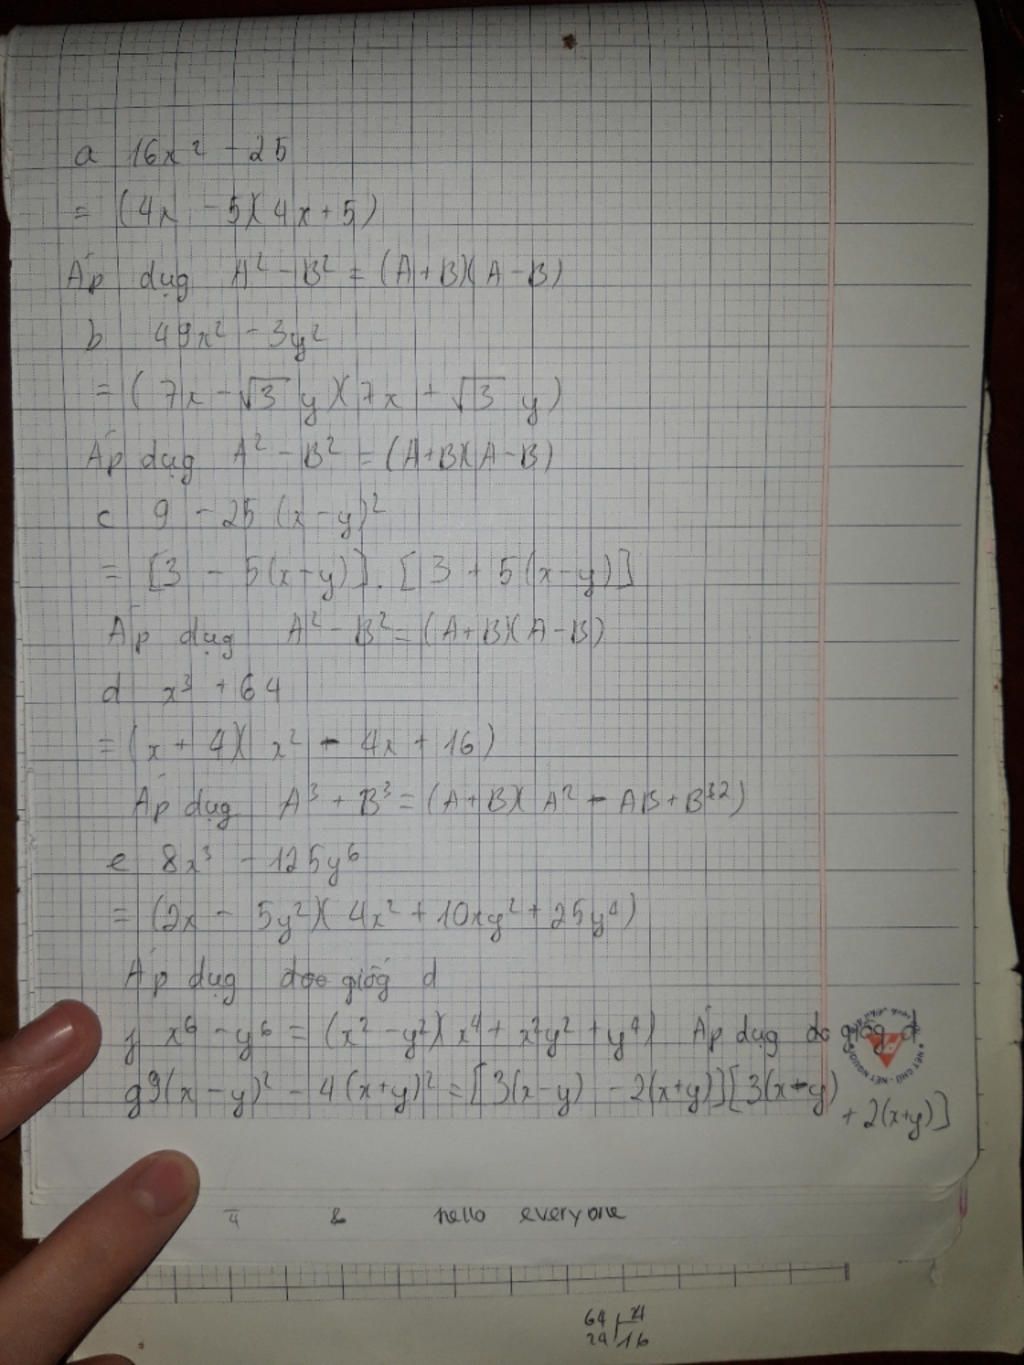 a 16x² - 25
= (4x - 5)(4x + 5)
Áp dụg A² - B² = (A + B)(A - B)
b 49x² - 3y²
= (7x - √3 y)(7x + √3 y)
Áp dụg A² - B² = (A+B)(A-B)
c 9 - 25 (x - y)²
= [3 - 5(x - y)] . [3 + 5(x-y)]
Áp dụg A² - B² = (A+B)(A-B)
d x³ + 64
= (x + 4)(x² - 4x + 16)
Áp dụg A³ + B³ = (A+B)(A² - AB + B²)
e 8x³ - 125y⁶
= (2x - 5y²)(4x² + 10xy² + 25y⁴)
Áp dụg giốg d
f x⁶ - y⁶ = (x² - y²)(x⁴ + x²y² + y⁴) Áp dụg do giốg d
g 9(x - y)² - 4(x+y)² = [3(x-y) - 2(x+y)][3(x-y)
+ 2(x+y)]
NÉT CHỮ - NẾT NGƯỜI
hello everyone
64 x4
24 16